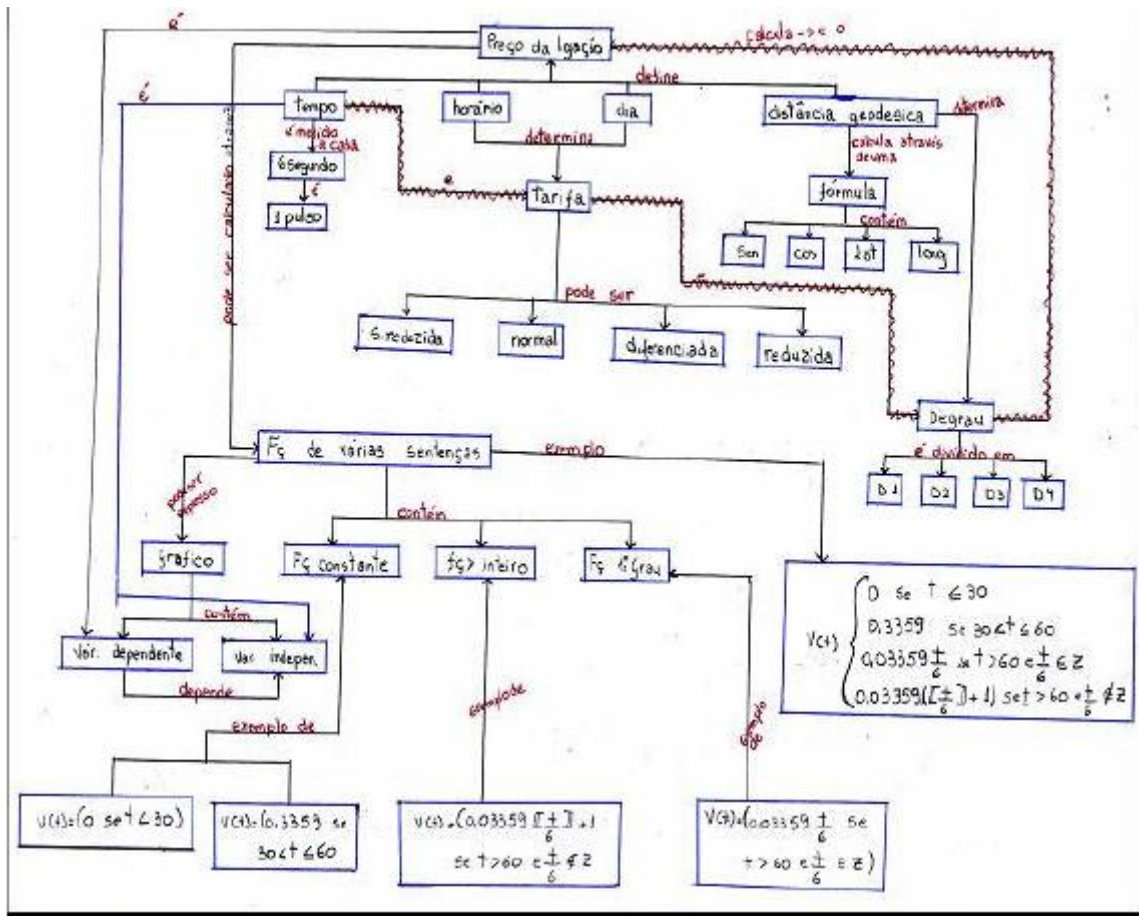 é
Preço da ligação
calcula-se o
define
é
tempo
horário
dia
distância geodesica
determina
é medido
a cada
6 segundo
é
1 pulso
determina
calcula através
de uma
fórmula
e
Tarifa
contém
Sen
cos
Lat
long
pode ser calculado através
pode ser
S. reduzida
normal
diferenciada
reduzida
Degrau
é dividido em
D1
D2
D3
D4
Fç de várias sentenças
exemplo
pode ser
expresso
contém
grafico
Fç constante
fç > inteiro
Fç 1º grau
contém
Var. dependente
Var. indepen.
depende
V(t)
0 se t ≤ 30
0,3359 se 30 < t ≤ 60
0,03359 t/6 se t > 60 e t/6 ∈ Z
0,03359([t/6] + 1) se t > 60 e t/6 ∉ Z
exemplo de
exemplo de
exemplo
de
V(t)=(0 se t ≤ 30)
V(t)=(0,3359 se
30 < t ≤ 60
V(t)=(0,03359 [t/6] +1
se t > 60 e t/6 ∉ Z
V(t)=(0,03359 t/6 se
t > 60 e t/6 ∈ Z)